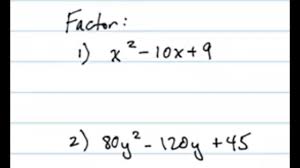 Factor:
1) x² - 10x + 9
2) 80y² - 120y + 45